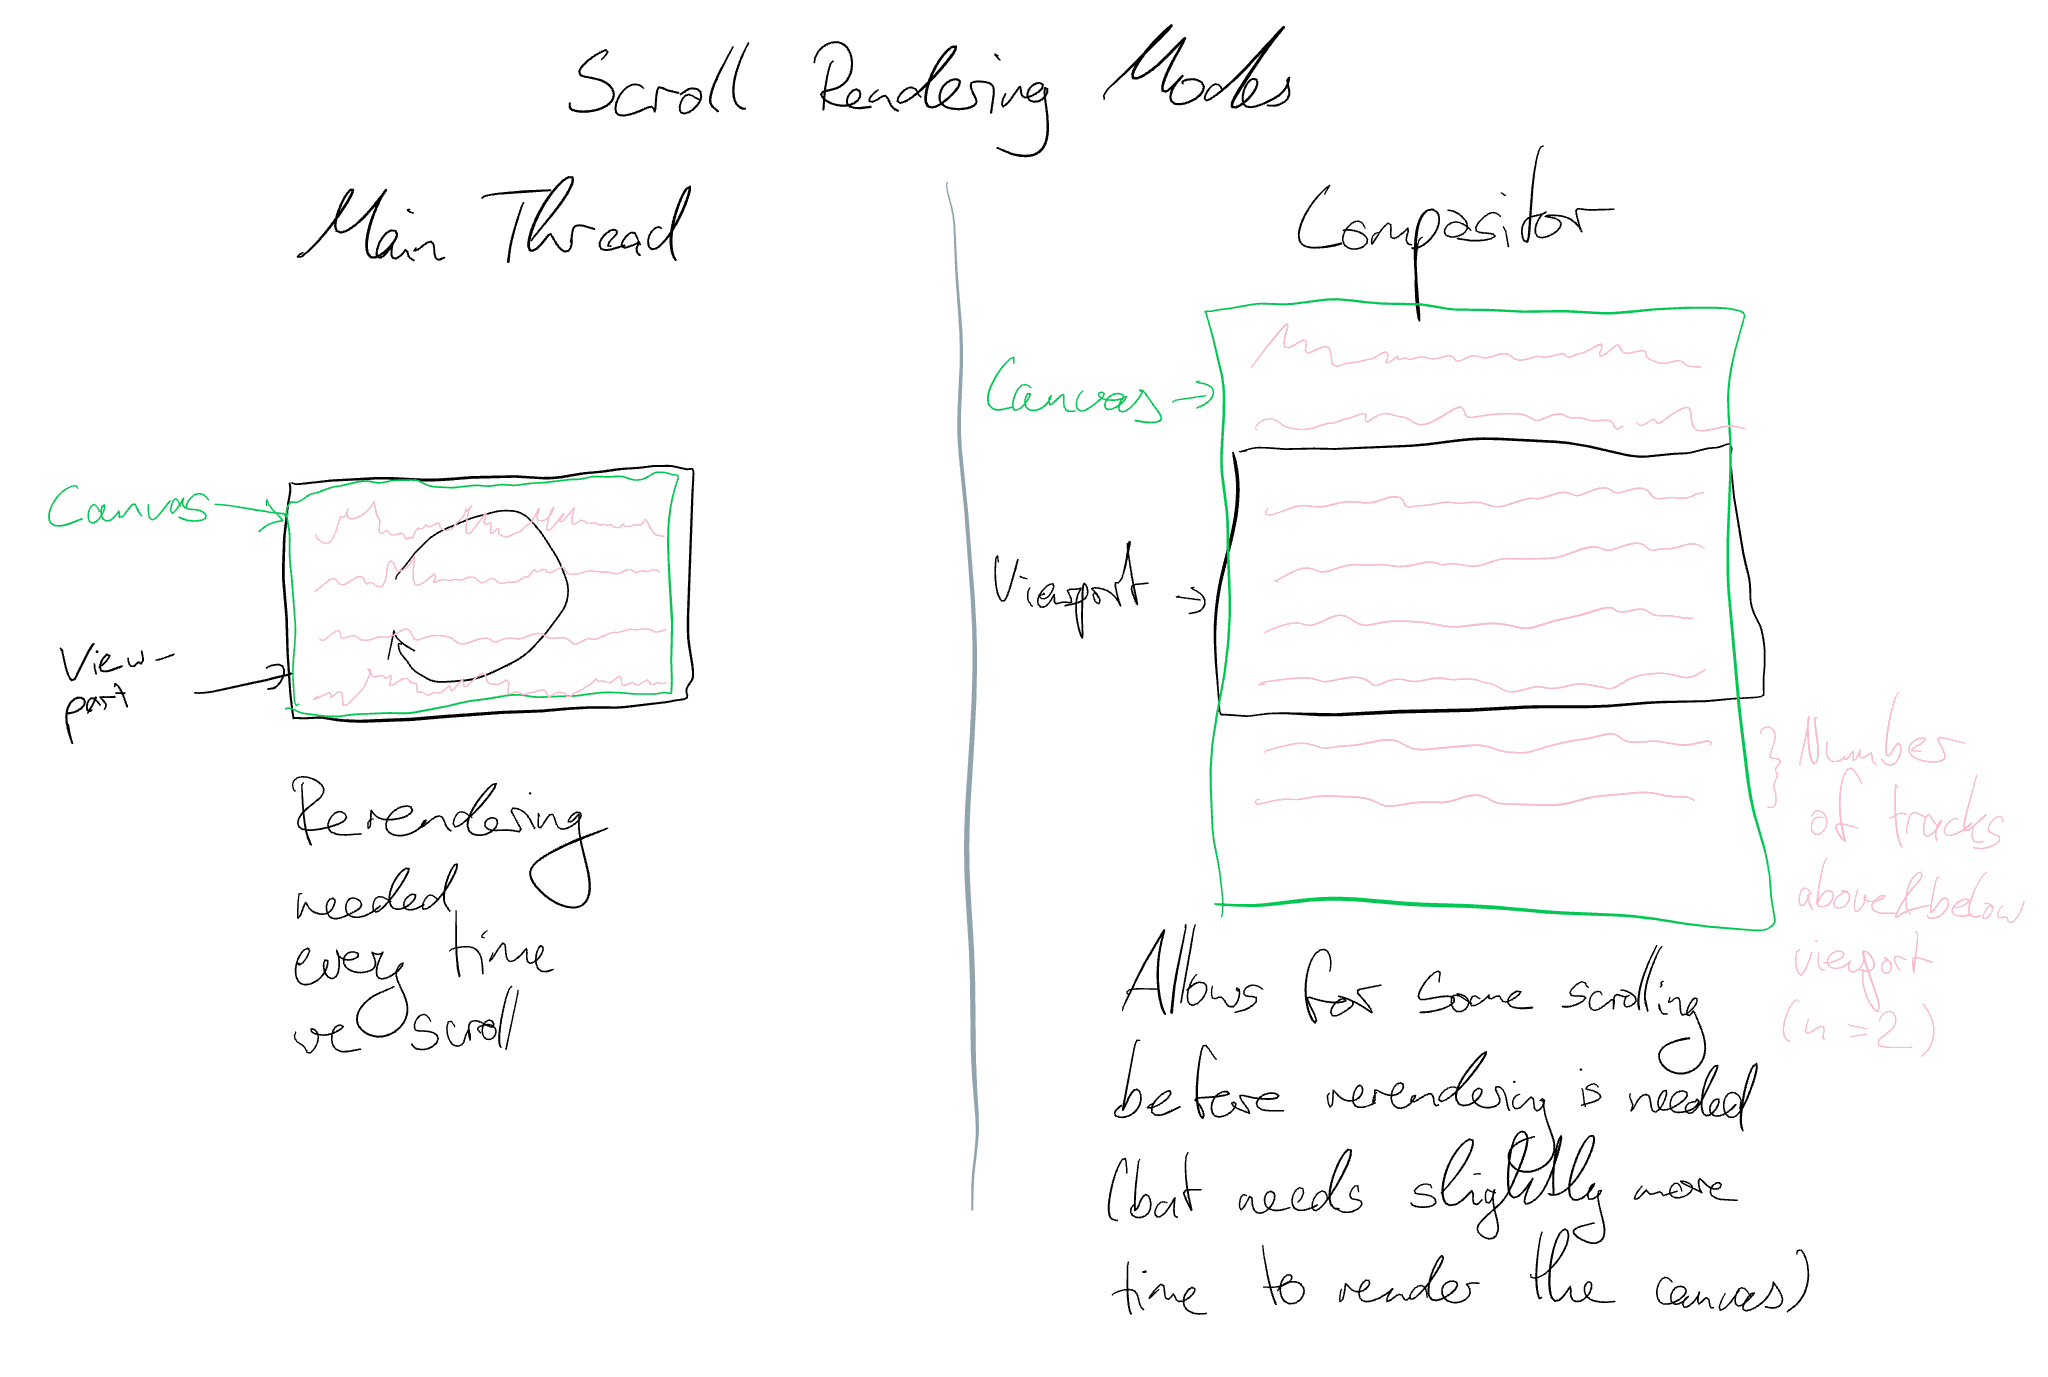 Scroll Rendering Modes
Main Thread
Canvas
View-
port
Rerendering
needed
every time
we scroll
Compositor
Canvas
Viewport
Number
of tracks
above&below
viewport
(n=2)
Allows for some scrolling
before rerendering is needed
(but needs slightly more
time to render the canvas)